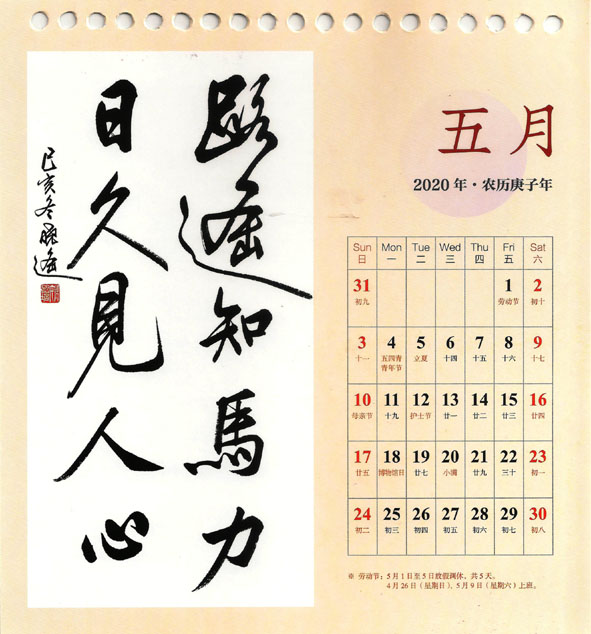 路遥知馬力
日久見人心
己亥冬
五月
2020 年·农历庚子年
Sun Mon Tue Wed Thu Fri Sat
日 一 二 三 四 五 六
31 1 2
初九 劳动节 初十
3 4 5 6 7 8 9
十一 五四青 立夏 十四 十五 十六 十七
青年节
10 11 12 13 14 15 16
母亲节 十九 护士节 廿一 廿二 廿三 廿四
17 18 19 20 21 22 23
廿五 博物馆日 廿七 小满 廿九 三十 初一
24 25 26 27 28 29 30
初二 初三 初四 初五 初六 初七 初八
※ 劳动节：5月1日至5日放假调休，共5天。
4月26日（星期日）、5月9日（星期六）上班。